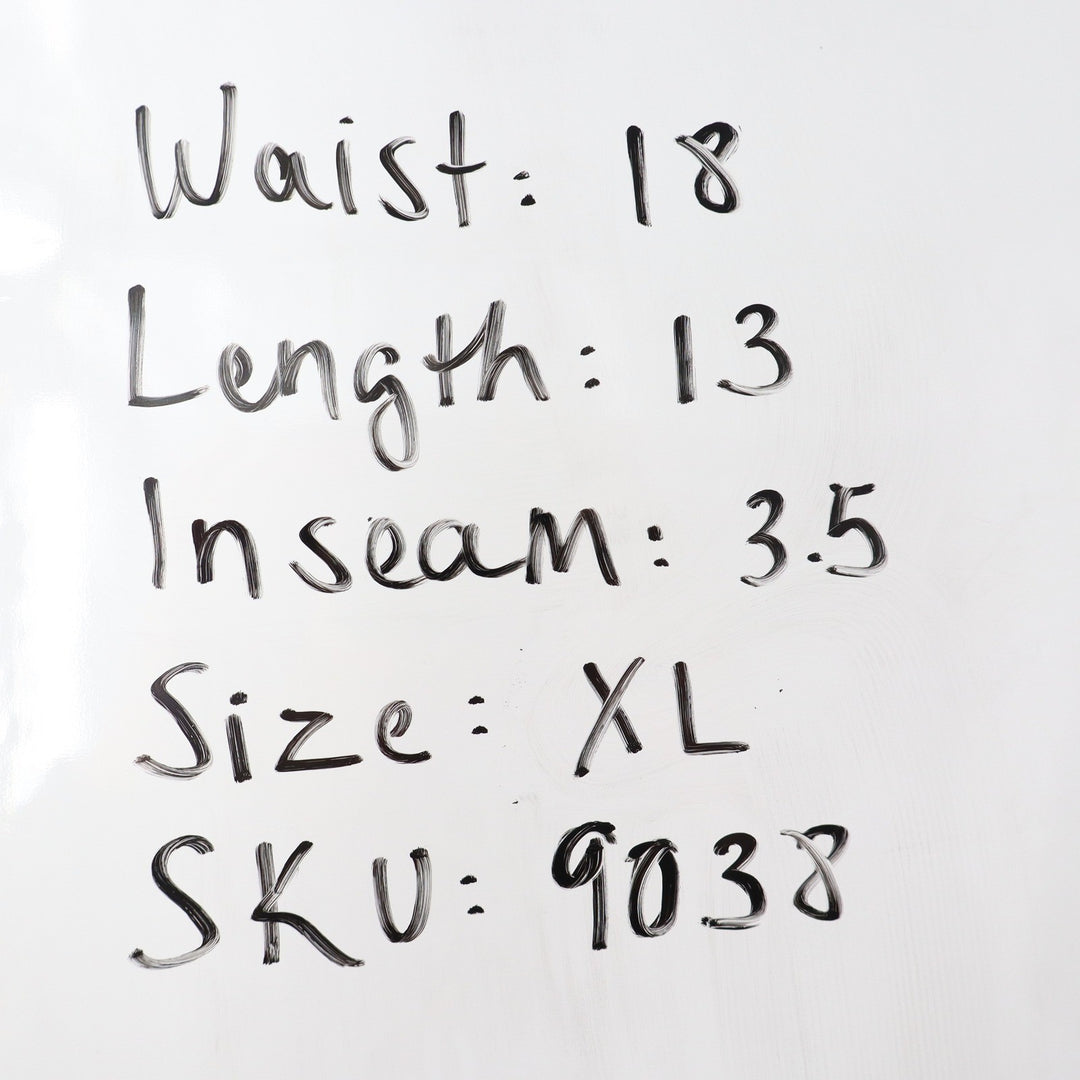 Waist: 18
Length: 13
Inseam: 3.5
Size: XL
SKU: 9038